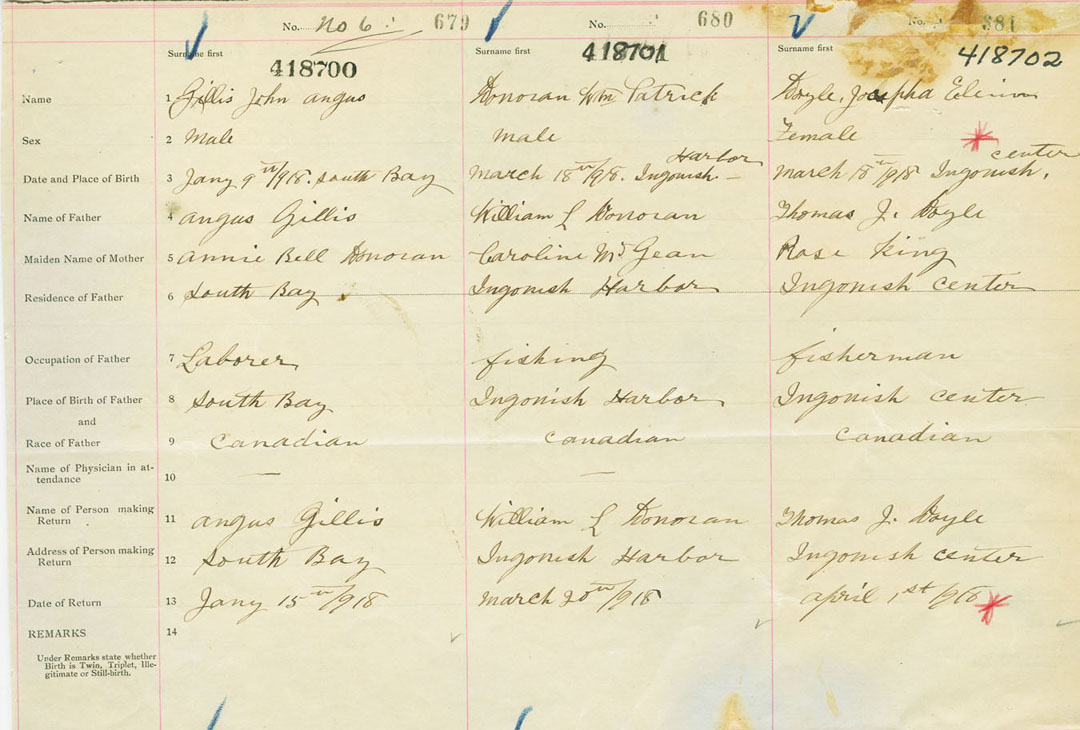 No. No 6 679 No. 680 No. 381
Surname first Surname first Surname first
418700 418701 418702
Name 1 Gillis John Angus Donovan Wm Patrick Doyle, Josepha
Sex 2 Male male Female
Harbor center
Date and Place of Birth 3 Jany 9th/1918. South Bay March 18th/918. Ingonish - March 18th/918 Ingonish.
Name of Father 4 Angus Gillis William L Donovan Thomas J. Doyle
Maiden Name of Mother 5 Annie Bell Donovan Caroline McGean Rose King
Residence of Father 6 South Bay Ingonish Harbor Ingonish center
Occupation of Father 7 Laborer fishing fisherman
Place of Birth of Father 8 South Bay Ingonish Harbor Ingonish center
and
Race of Father 9 Canadian Canadian Canadian
Name of Physician in at-
tendance 10 — —
Name of Person making
Return 11 Angus Gillis William L Donovan Thomas J. Doyle
Address of Person making
Return 12 South Bay Ingonish Harbor Ingonish center
Date of Return 13 Jany 15th/918 March 20th/918 April 1st/918
REMARKS 14
Under Remarks state whether
Birth is Twin, Triplet, Ille-
gitimate or Still-birth.